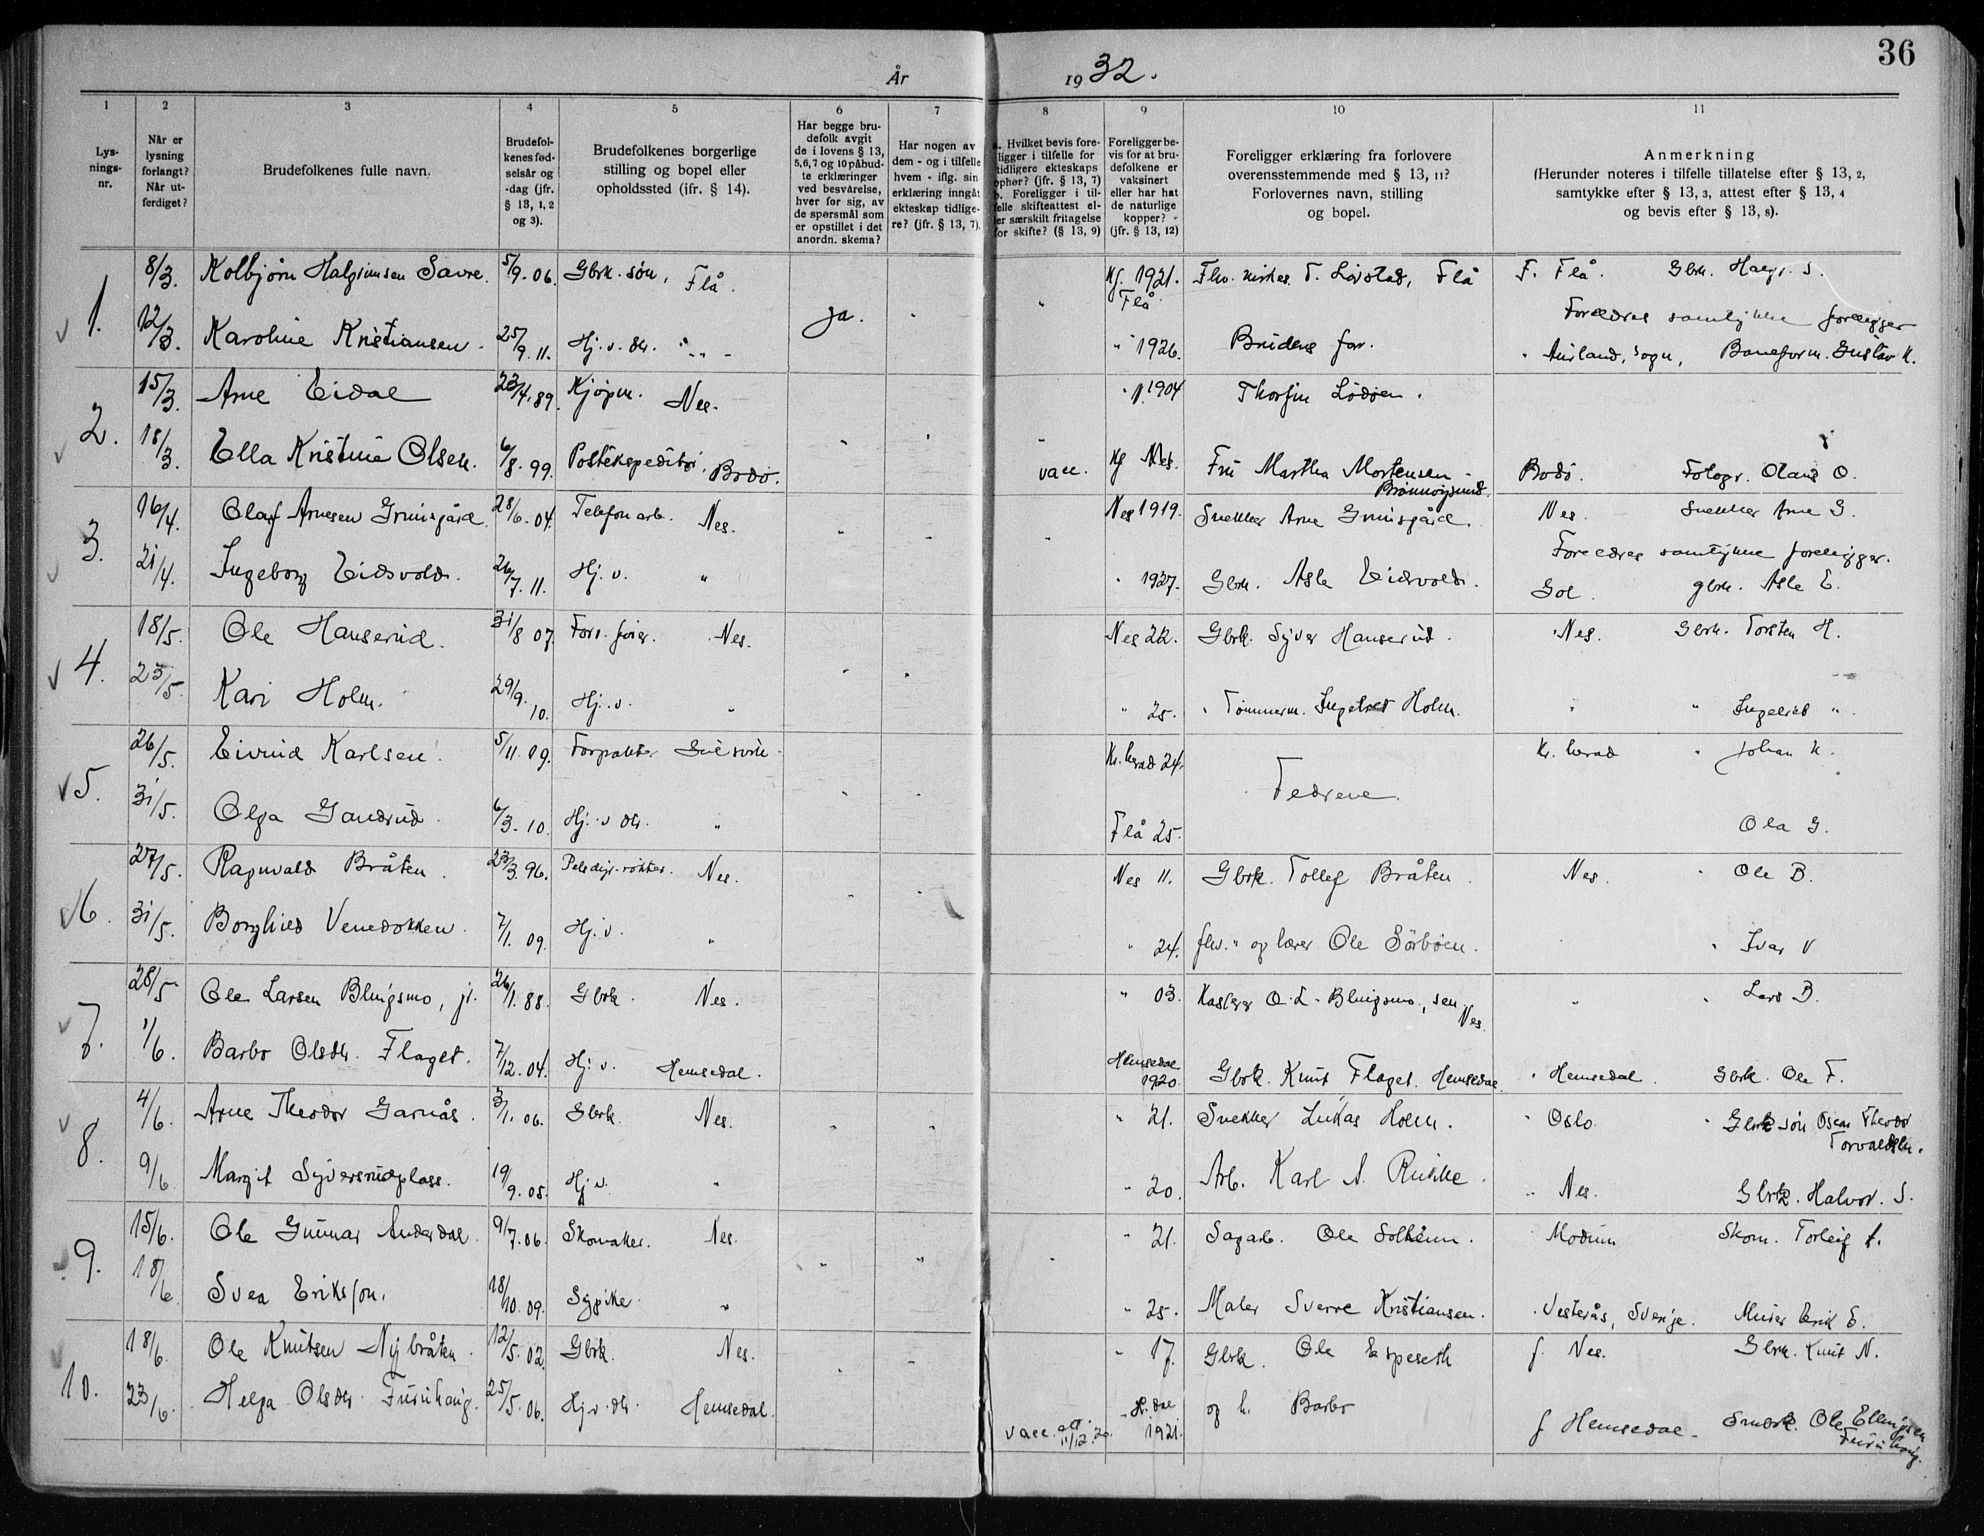 36
År 1932.
1 2 3 4 5 6 7 8 9 10 11
Lys-
nings-
nr.
Når er
lysning
forlangt?
Når ut-
ferdiget?
Brudefolkenes fulle navn.
Brudefol-
kenes fød-
selsår og
-dag (jfr.
§ 13, 1, 2
og 3).
Brudefolkenes borgerlige
stilling og bopel eller
opholdssted (jfr. § 14).
Har begge bru-
defolk avgit
de i lovens § 13,
5,6,7 og 10 påbud-
te erklæringer
ved besvarelse,
hver for sig, av
de spørsmål som
er opstillet i det
anordn. skema?
Har nogen av
dem - og i tilfelle
hvem - iflg. sin
erklæring inngåt
ekteskap tidlige-
re? (jfr. § 13, 7).
a. Hvilket bevis fore-
ligger i tilfelle for
tidligere ekteskaps
ophør? (jfr. § 13, 7)
b. Foreligger i til-
felle skifteattest el-
ler særskilt fritagelse
for skifte? (§ 13, 9)
Foreligger be-
vis for at bru-
defolkene er
vaksinert
eller har hat
de naturlige
kopper? -
(jfr. § 13, 12)
Foreligger erklæring fra forlovere
overensstemmende med § 13, 11?
Forlovernes navn, stilling
og bopel.
Anmerkning
(Herunder noteres i tilfelle tillatelse efter § 13, 2,
samtykke efter § 13, 3, attest efter § 13, 4
og bevis efter § 13, 8).
1. 8/3. Kolbjørn Halgrimsen Savre. 5/9. 06. Gbrk. søn, Flå. ja. " Kf. 1921. Flå. Fhv. kirkes. T. Løvstad, Flå F. Flå. Gbrk. Halgr. S.
Foreldres samtykke foreligger
12/3. Karoline Kristiansen. 25/9. 11. Hj. v. dtr. " " 1926. Brudens far. " Aurland, Sogn, Baneform. Gustav K.
2. 15/3. Arne Eidal 23/4. 89. Kjøpm. Nes. " 1904 Thorfin Lodøen.
18/3. Ella Kristine Olsen. 6/8. 99. Postekspeditør, Bodø. " " " vacc. Kf Nes. Fru Martha Mortensen Brønnøysund. Bodø. Fotogr. Olaus O.
3. 16/4. Olaf Arnesen Grimsgård. 28/6. 04. Telefonarb. Nes. " " " Nes 1919. Snekker Arne Grimsgård. Nes. Snekker Arne G.
Foreldres samtykke foreligger.
21/4. Ingeborg Eidsvold. 26/7. 11. Hj. v. " " 1927. Gbrk. Asle Eidsvold. Gol. gbrk. Asle E.
4. 18/5. Ole Hanserud. 31/8 07. Nes. Nes 22. Gbrk. Syver Hanserud. Nes. Gbrk. Torsten H.
23/5. Kari Holm. 29/9. 10. Hj. v. " " " " 25. " Tømmerm. Ingebret Holm. " " Ingebret "
5. 26/5. Eivind Karlsen 5/11. 09. Forpakter Gulsvik Kr. herad 24. Fedrene. Kr. herad " Johan K.
31/5. Olga Gandrud. 6/3. 10. Hj. v dtr. " " " Flå 25. Ola G.
6. 27/5. Ragnvald Bråten. 23/3. 96. Pelsdyr-røkter. Nes. " " Nes 11. Gbrk. Tollef Bråten. Nes. " Ole B.
31/5. Borghild Venedokken. 7/1. 09. Hj. v. " " 24. fhv. " og lærer Ole Sørbøen. " " Ivar V
7. 28/5 Ole Larsen Blingsmo, jr. 26/1. 88. Gbrk. Nes. " 03. Kasserer O. L. Blingsmo, sen. Nes. " " Lars B.
1/6. Barbo Olsdtr. Flaget. 7/12. 04. Hj. v. Hemsedal. Hemsedal 1920. Gbrk. Knut Flaget. Hemsedal. " Hemsedal. Gbrk. Ole F.
8. 4/6. Arne Theodor Garnås. 3/1. 06. Gbrk. Nes. " " " 21. Snekker Lukas Holm. " Oslo. " Gbrksøn Oscar Theodor Torvaldsen.
9/6 Margit Syversrudplass. 19/9. 05. Hj. v. " " 20. Arb. Karl A. Rukke. " Nes. Gbrk. Halvor. S.
9. 15/6. Ole Gunnar Anderdal. 9/7. 06. Skomaker. Nes. " " " " 21. Sagarb. Ole Solheim. Modum Skom. Torleif A.
18/6 Svea Eriksson. 18/10. 09. Sypike. " " 25. Maler Sverre Kristiansen. " Vesterås, Sverige. Murer Erik E.
10. 18/6. Ole Knutsen Nybråten. 12/5. 02. Gbrk. Nes. " " " 17. Gbrk. Ole Espeseth f. Nes. Gbrk. Knut N.
23/6. Helga Olsdtr. Furuhaug. 25/5. 06. Hj. v. dtr. Hemsedal. vacc. att. 11/12. 20. " H.dal 1921. og h. Barbo f Hemsedal. Småbrk. Ole Ellingsen Furuhaug.